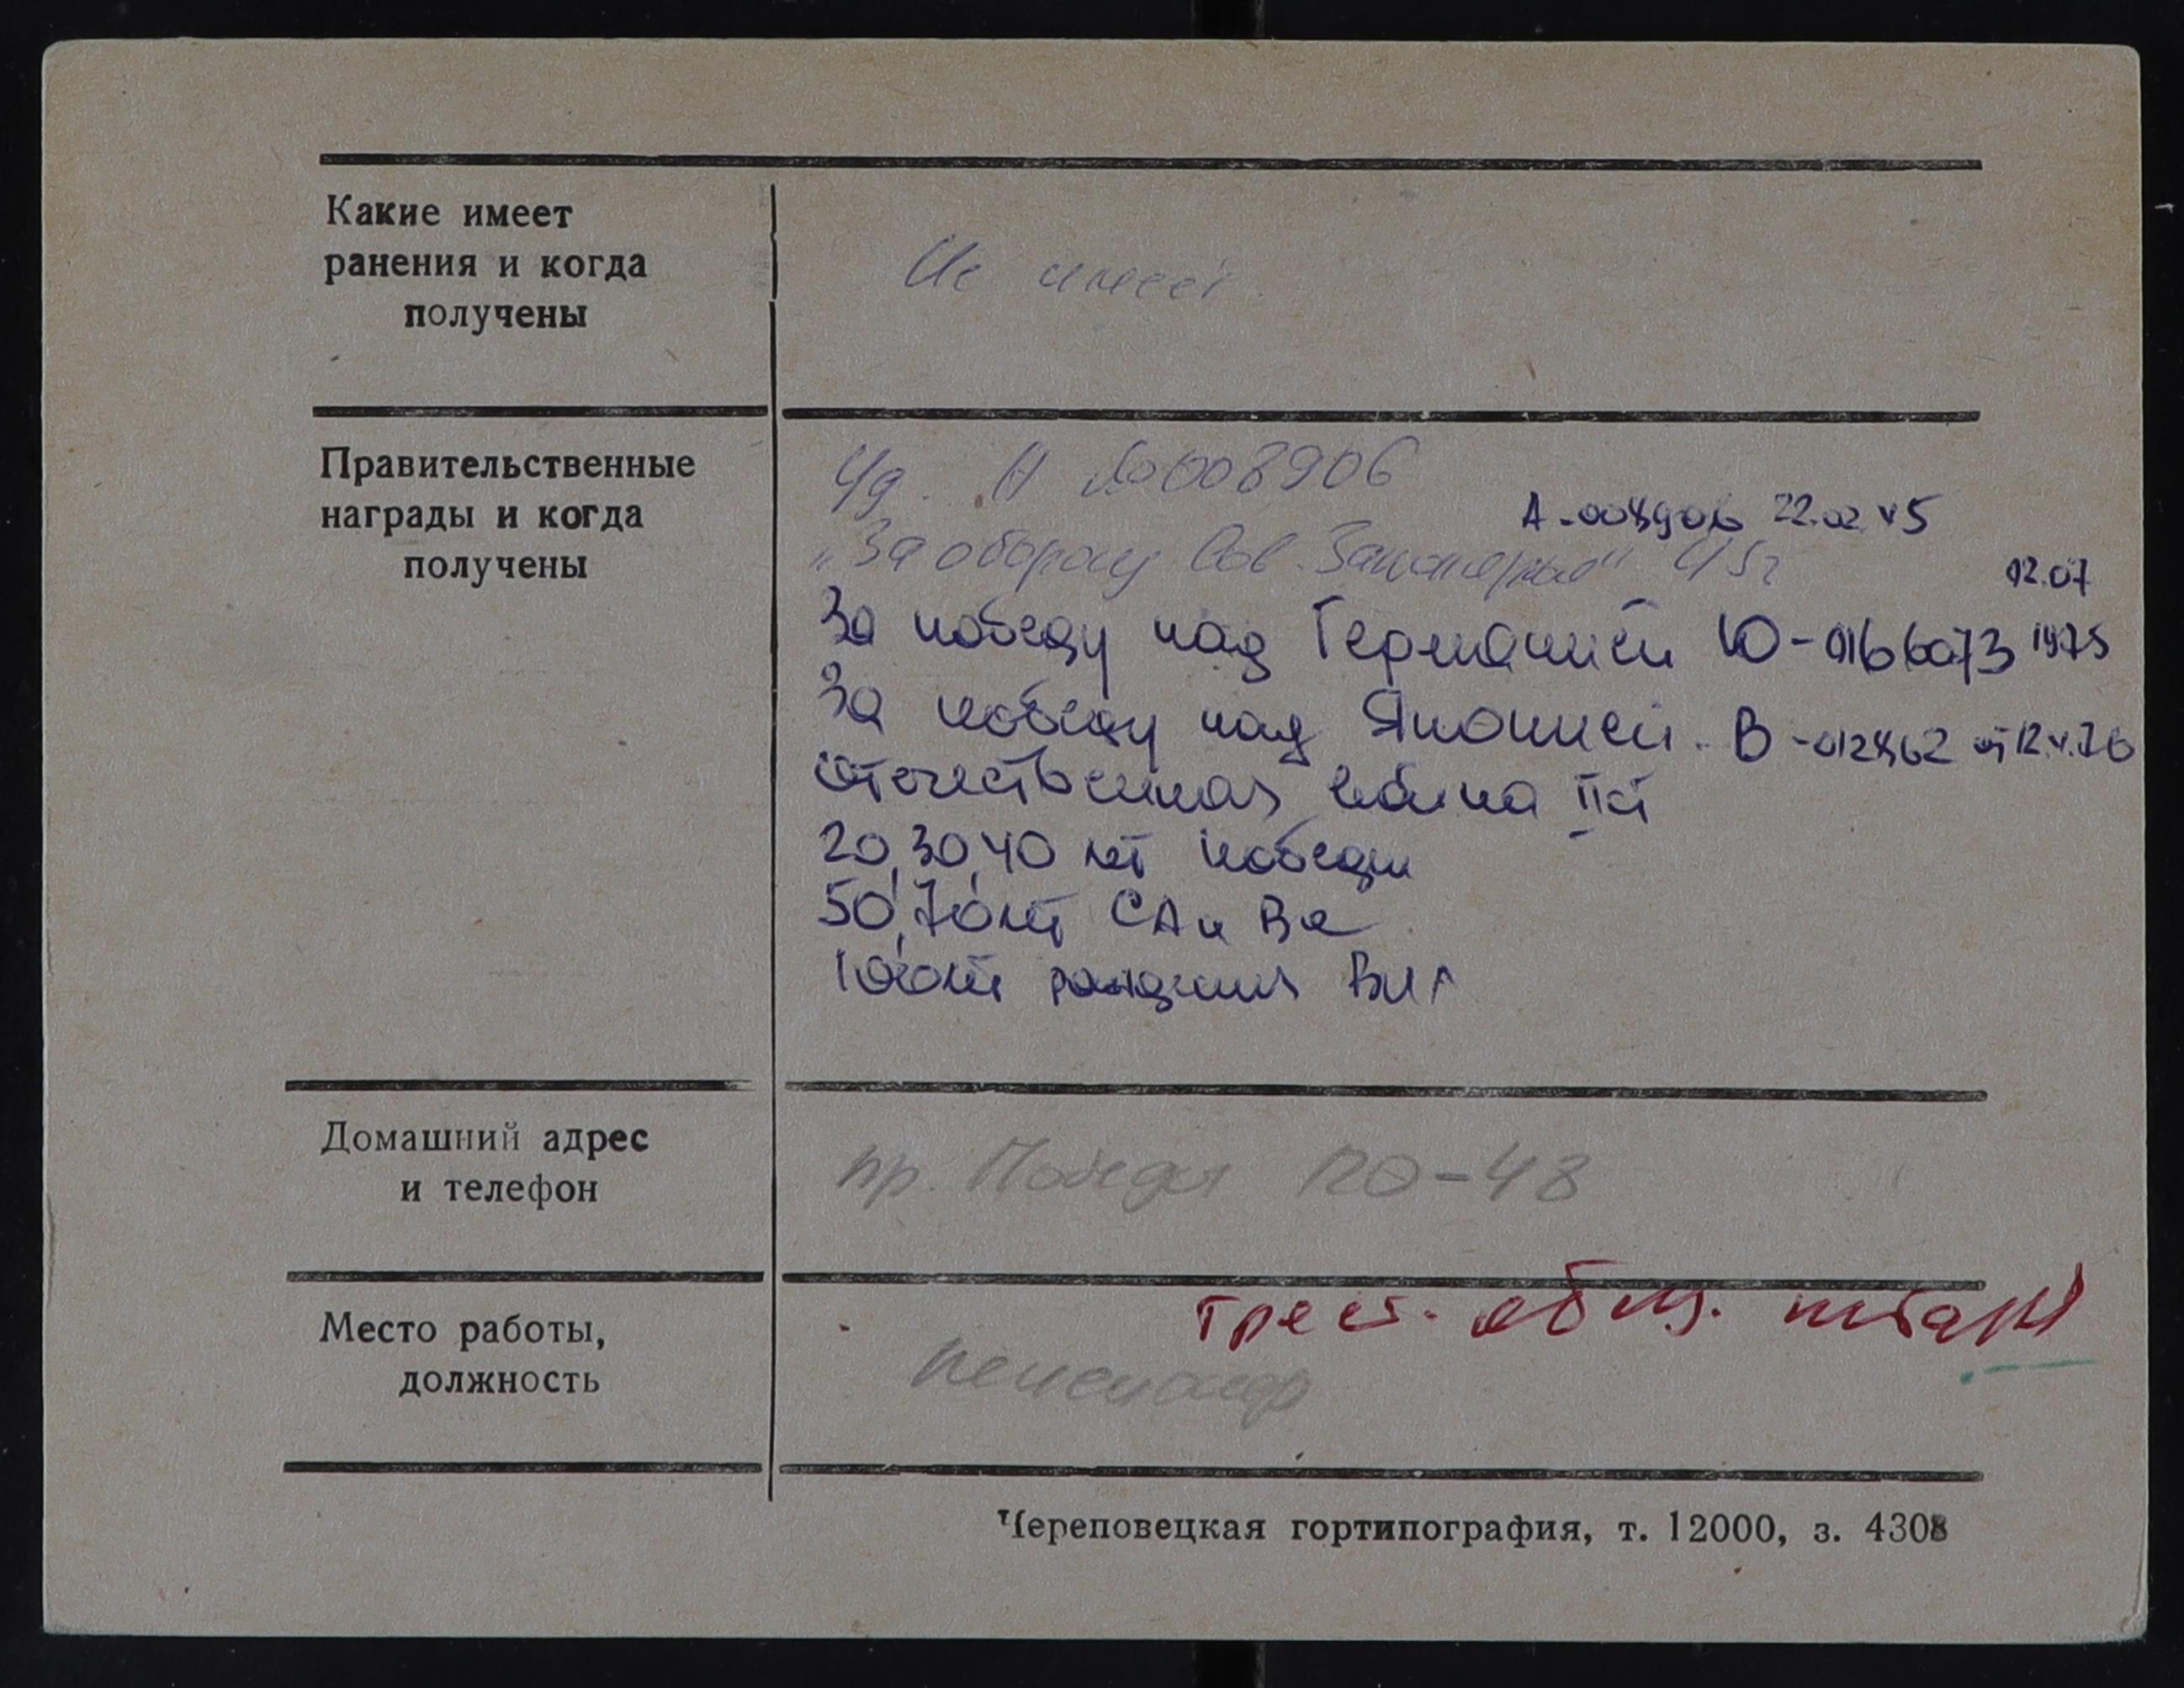 Какие имеет
ранения и когда
получены
Не имеет
Правительственные
награды и когда
получены
Уд. А №008906
А-008906 22.02.45
„За оборону Сов. Заполярья" 45г
12.07
За победу над Германией Ю-0166073 1975
За победу над Японией. В-012862 от 12.V.76
Отечественная война II ст
20, 30, 40 лет победы
50, 70 лет СА и ВФ
100 лет рождения ВИЛ
Домашний адрес
и телефон
пр. Победы 120-48
Место работы,
должность
трест. общ. пит
пенсионер
Череповецкая гортипография, т. 12000, з. 4308